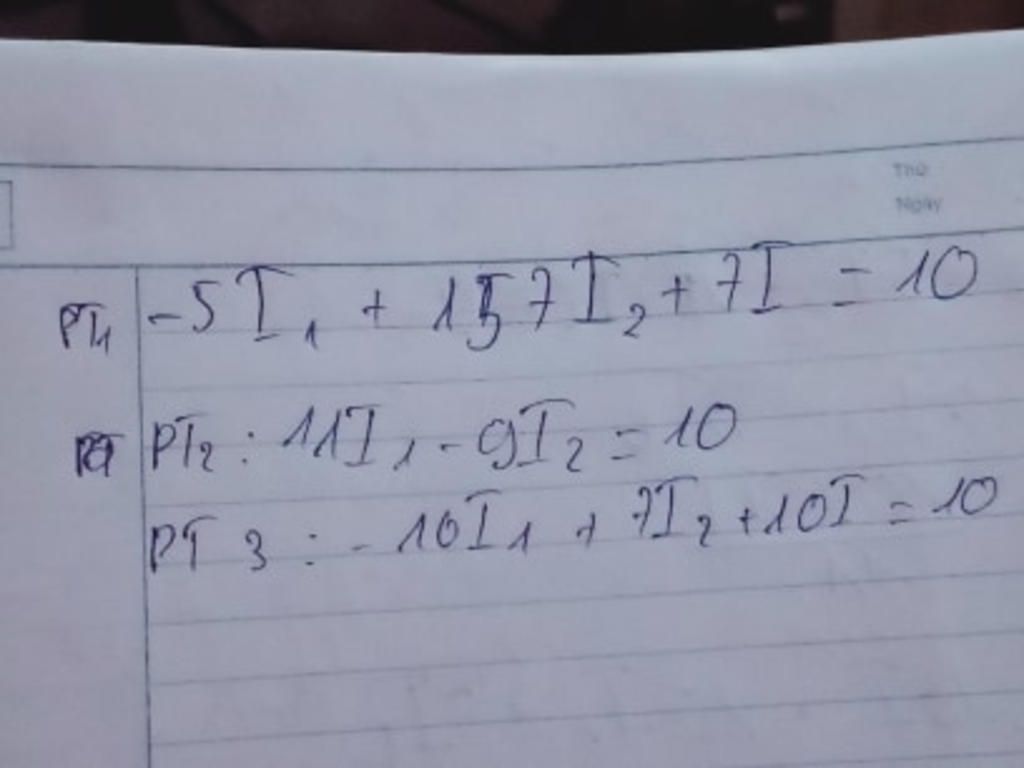 Thứ
Ngày
PT1 -5I₁ + 157I₂ + 7I = 10
PT2 : 11I₁ - 9I₂ = 10
PT 3 : - 10I₁ + 7I₂ + 10I = 10